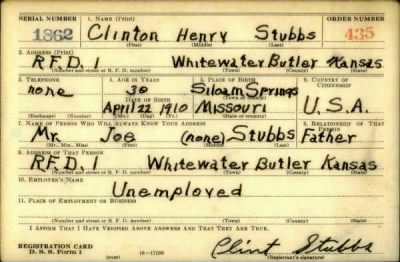 SERIAL NUMBER 1. NAME (Print) ORDER NUMBER
1862 Clinton Henry Stubbs 435
(First) (Middle) (Last)
2. ADDRESS (Print)
R.F.D. 1 Whitewater Butler Kansas
(Number and street or R. F. D. number) (Town) (County) (State)
3. TELEPHONE 4. AGE IN YEARS 5. PLACE OF BIRTH 6. COUNTRY OF CITIZENSHIP
none 30 Siloam Springs
DATE OF BIRTH
April 22 1910 Missouri U.S.A.
(Exchange) (Number) (Mo.) (Day) (Yr.) (State or country)
7. NAME OF PERSON WHO WILL ALWAYS KNOW YOUR ADDRESS 8. RELATIONSHIP OF THAT PERSON
Mr. Joe (none) Stubbs Father
(Mr., Mrs., Miss) (First) (Middle) (Last)
9. ADDRESS OF THAT PERSON
R.F.D. 1 Whitewater Butler Kansas
(Number and street or R. F. D. number) (Town) (County) (State)
10. EMPLOYER'S NAME
Unemployed
11. PLACE OF EMPLOYMENT OR BUSINESS
(Number and street or R. F. D. number) (Town) (County) (State)
I AFFIRM THAT I HAVE VERIFIED ABOVE ANSWERS AND THAT THEY ARE TRUE.
REGISTRATION CARD
D. S. S. Form 1 Clint Stubbs
(over) (Registrant's signature)